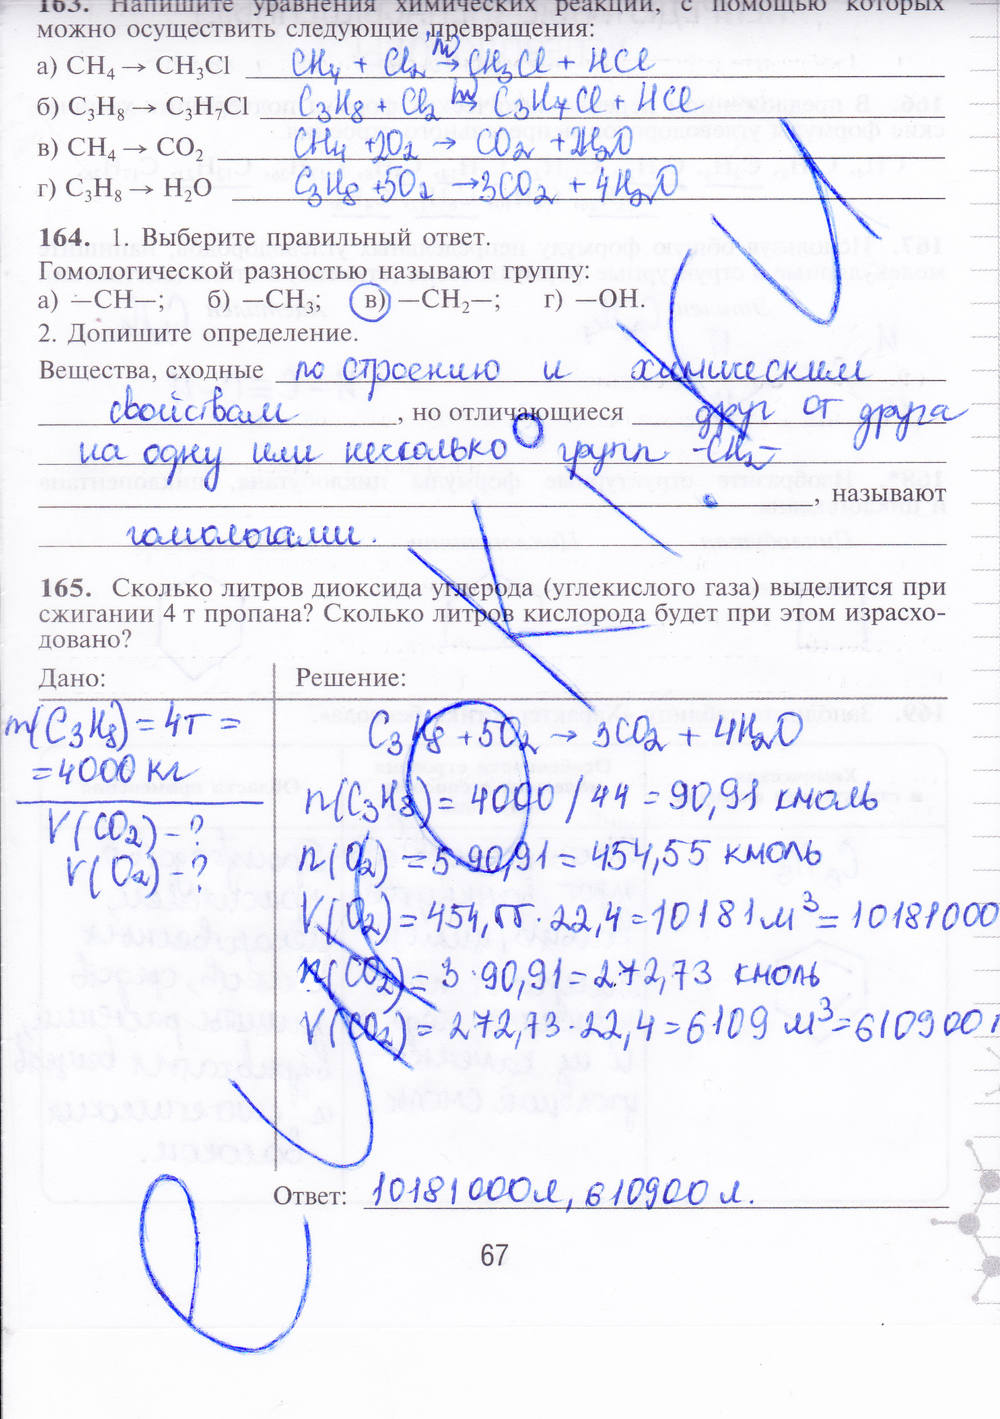 163. Напишите уравнения химических реакций, с помощью которых
можно осуществить следующие превращения:
а) CH₄ → CH₃Cl CH₄ + Cl₂ →(hν) CH₃Cl + HCl
б) C₃H₈ → C₃H₇Cl C₃H₈ + Cl₂ →(hν) C₃H₇Cl + HCl
в) CH₄ → CO₂ CH₄ + 2O₂ → CO₂ + 2H₂O
г) C₃H₈ → H₂O C₃H₈ + 5O₂ → 3CO₂ + 4H₂O
164. 1. Выберите правильный ответ.
Гомологической разностью называют группу:
а) —CH—; б) —CH₃; в) —CH₂—; г) —OH.
2. Допишите определение.
Вещества, сходные по строению и химическим
свойствам, но отличающиеся друг от друга
на одну или несколько групп -CH₂-
, называют
гомологами.
165. Сколько литров диоксида углерода (углекислого газа) выделится при
сжигании 4 т пропана? Сколько литров кислорода будет при этом израсхо-
довано?
Дано:
m(C₃H₈) = 4т =
= 4000 кг
V(CO₂) - ?
V(O₂) - ?
Решение:
C₃H₈ + 5O₂ → 3CO₂ + 4H₂O
n(C₃H₈) = 4000 / 44 = 90,91 кмоль
n(O₂) = 5·90,91 = 454,55 кмоль
V(O₂) = 454,55·22,4 = 10181 м³ = 10181000
n(CO₂) = 3·90,91 = 272,73 кмоль
V(CO₂) = 272,73·22,4 = 6109 м³ = 610900 л
Ответ: 10181000л, 610900 л.
67